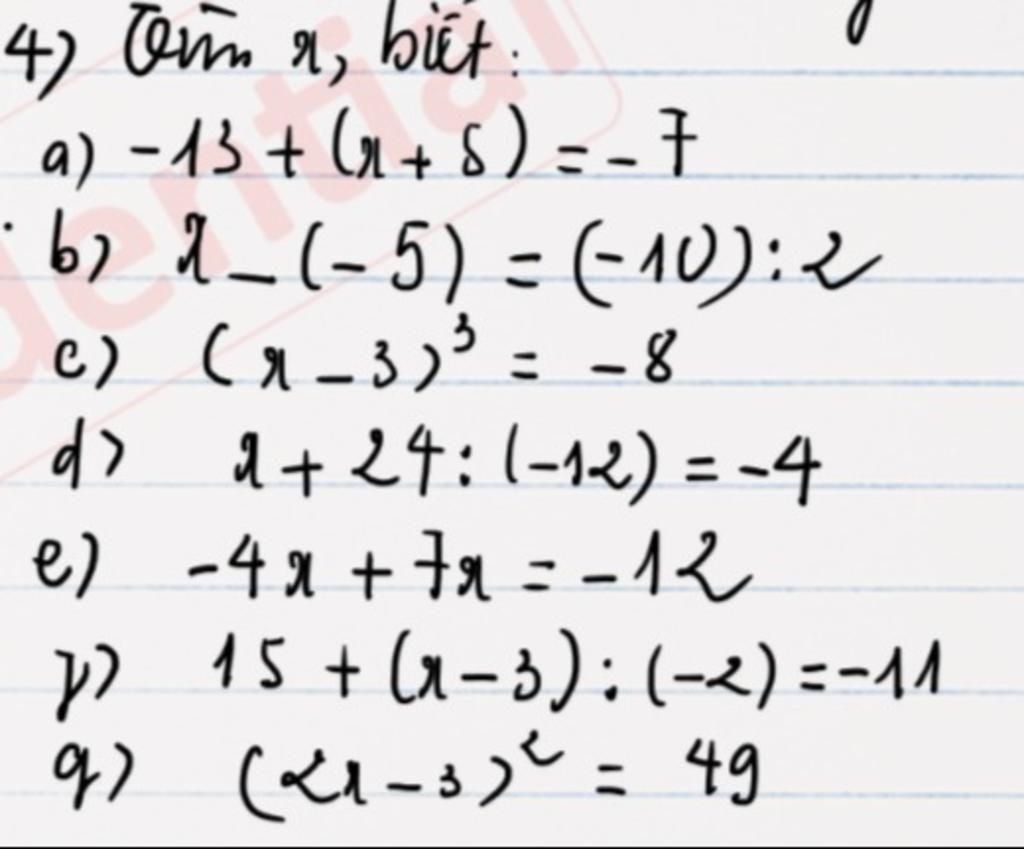 4) Tìm x, biết:
a) -13 + (x + 5) = - 7
b) x - (- 5) = (-10) : 2
c) (x - 3)³ = - 8
d) x + 24 : (-12) = -4
e) -4x + 7x = -12
f) 15 + (x - 3) : (-2) = -11
g) (2x - 3)² = 49